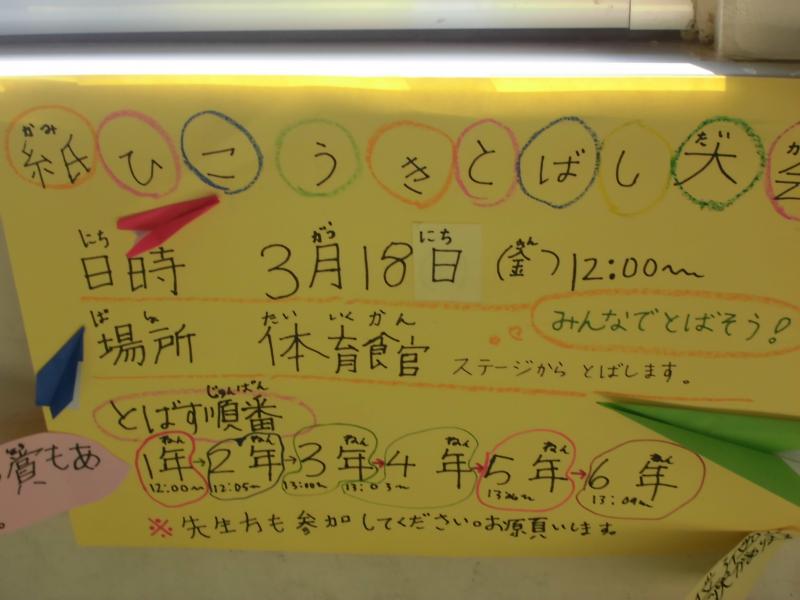 紙ひこうきとばし大会
かみ だ
日時 3月18日(金)12:00〜
にち がつ にち きん
場所 体育館
ばしょ たいいくかん
みんなでとばそう!
ステージから とばします。
とばす順番
じゅんばん
1年→2年→3年→4年→5年→6年
ねん ねん ねん ねん ねん ねん
12:00〜 12:05〜
賞もあ
※先生方も参加してください。お願いします。